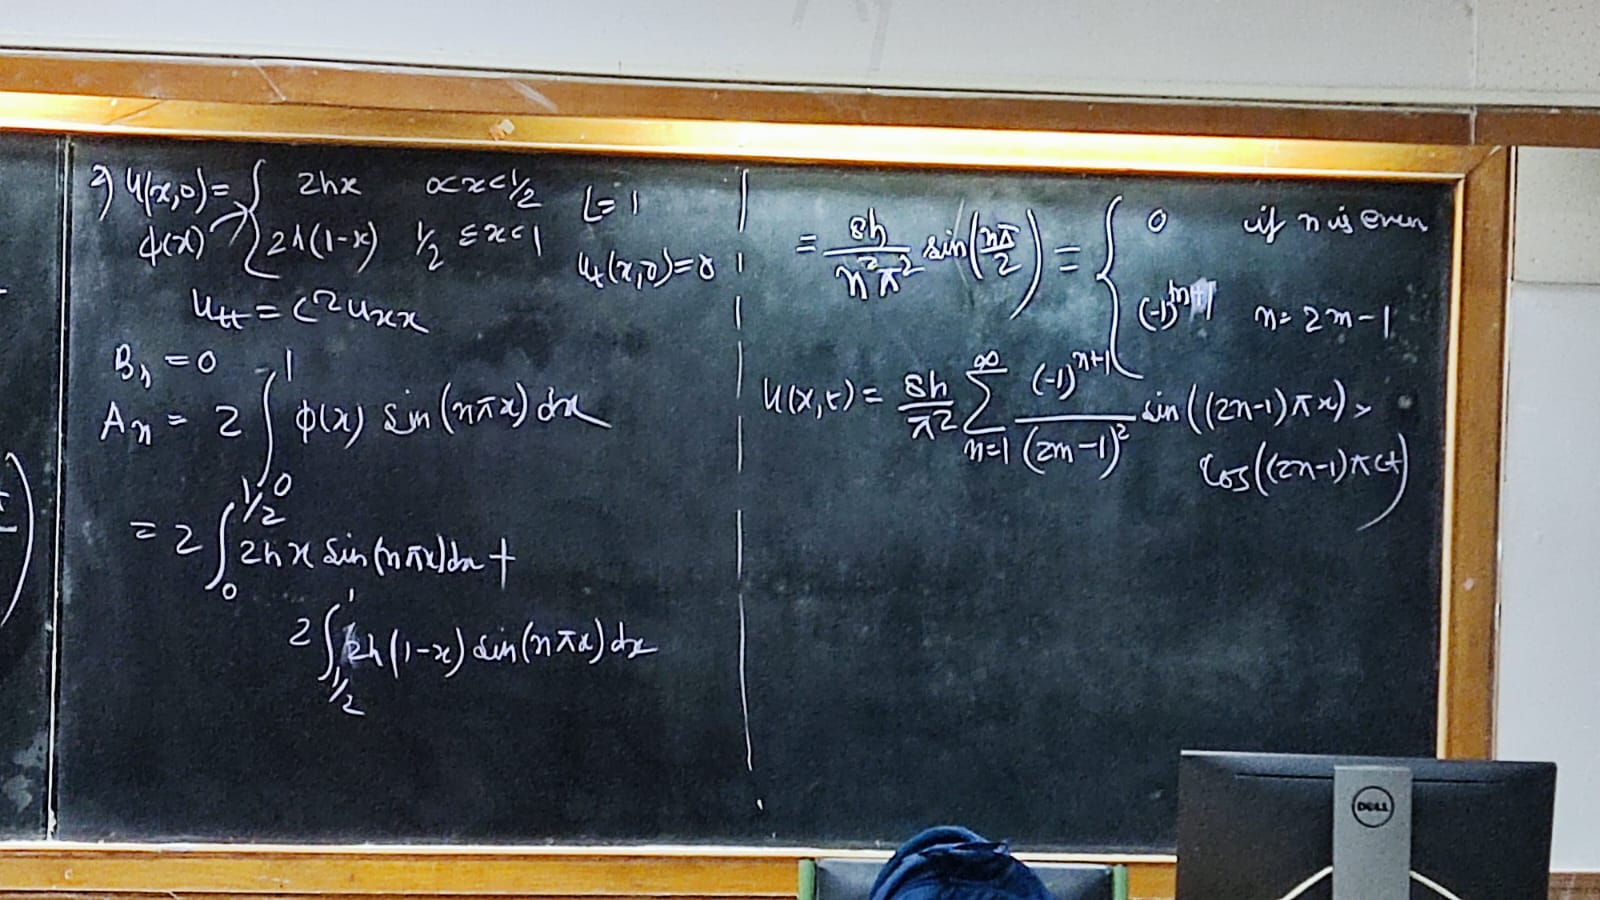 2) u(x,0) = { 2hx 0<x<1/2 L=1
φ(x) 2h(1-x) 1/2 ≤ x < 1 u_t(x,0)=0
u_tt = c²u_xx
B_n = 0
A_n = 2 ∫_0^1 φ(x) sin(nπx) dx
= 2 ∫_0^{1/2} 2hx sin(nπx)dx +
2 ∫_{1/2}^1 2h(1-x) sin(nπx) dx
= 8h/(n²π²) sin(nπ/2) = { 0 if n is even
(-1)^{m+1} n = 2m-1
u(x,t) = 8h/π² ∑_{n=1}^∞ (-1)^{n+1}/(2m-1)² sin((2n-1)πx) ×
cos((2n-1)πct)
DELL